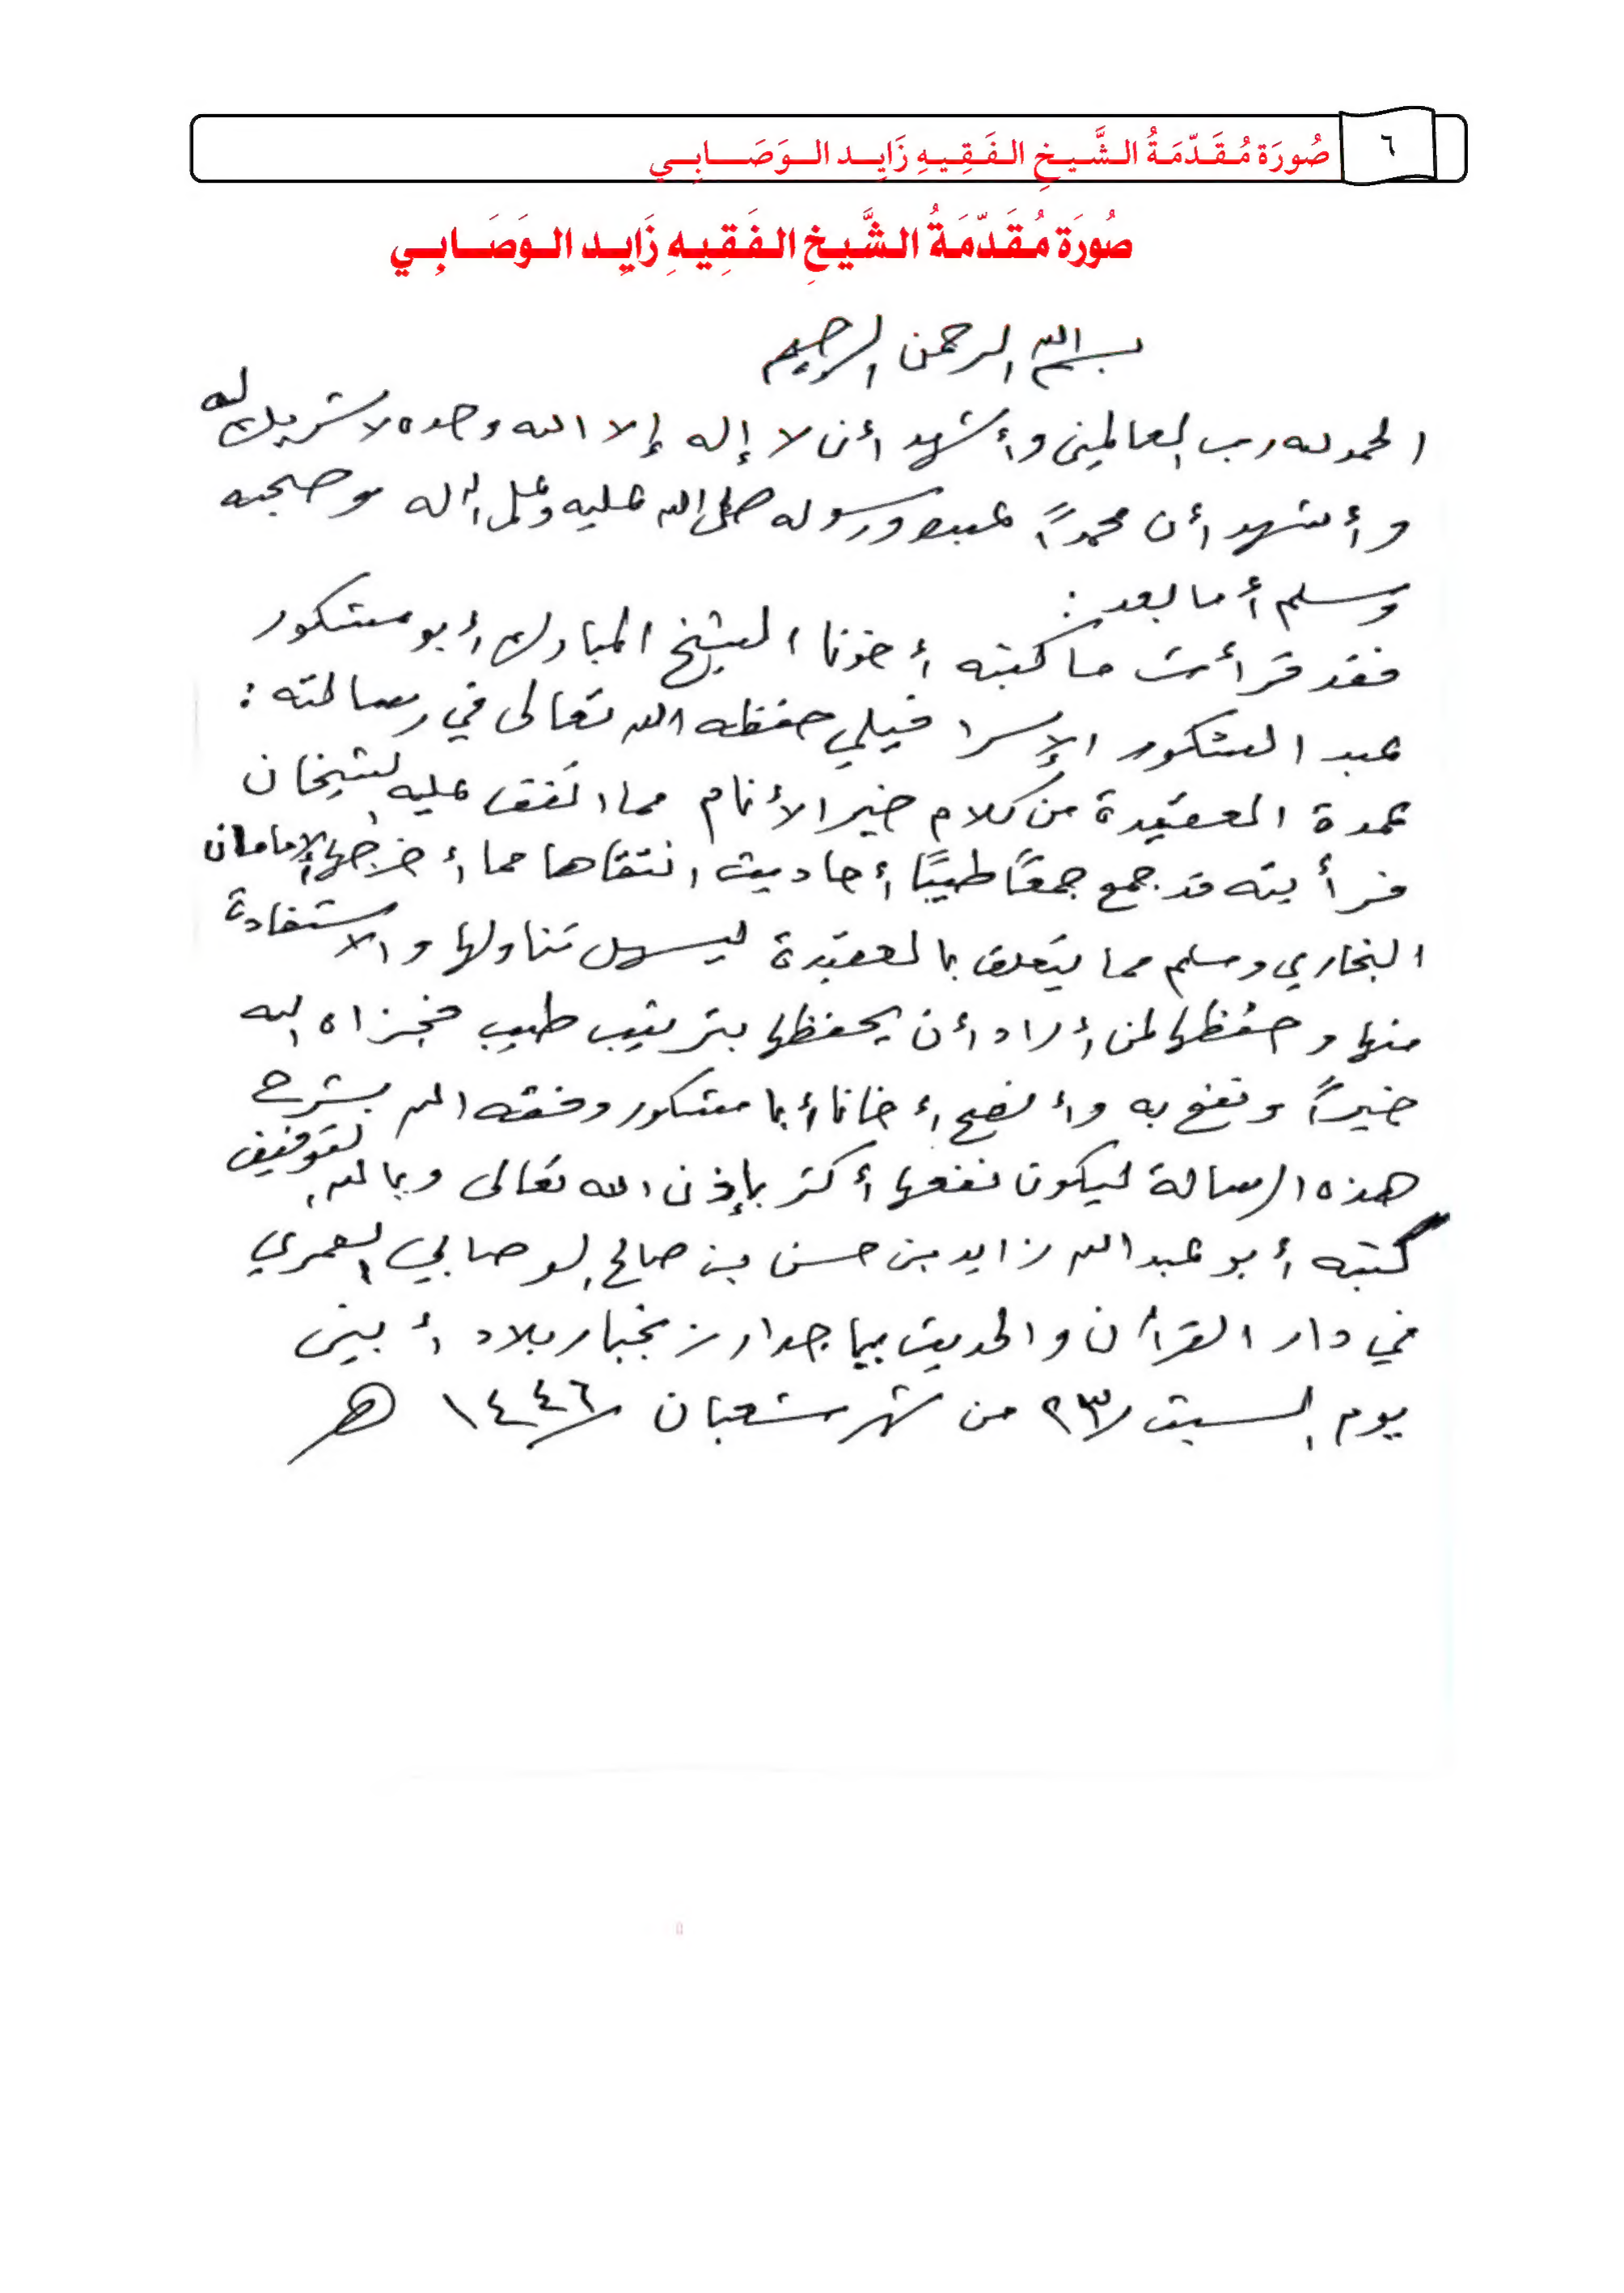 ٦
صُورَة مُقَدّمَةُ الشَّيخِ الفَقِيهِ زَايِد الوَصَابِي
صُورَة مُقَدّمَةُ الشَّيخِ الفَقِيهِ زَايِد الوَصَابِي
بسم الله الرحمن الرحيم
الحمد لله رب العالمين وأشهد أن لا إله إلا الله وحده لا شريك له
وأشهد أن محمداً عبده ورسوله صلى الله عليه وعلى آله وصحبه
وسلم أما بعد :
فقد قرأت ما كتبه أخونا الشيخ المبارك أبو مشكور
عبد الشكور الإسرافيلي حفظه الله تعالى في رسالته :
عمدة العقيدة من كلام خير الأنام مما اتفق عليه الشيخان
فرأيته قد جمع جمعًا طيبًا أحاديث انتقاها مما أخرجها الإمامان
البخاري ومسلم مما يتعلق بالعقيدة ليسهل تناولها والاستفادة
منها وحفظها لمن أراد أن يحفظها بترتيب طيب فجزاه الله
خيراً ونفع به وأنصح أخانا أبا مشكور وفقه الله بشرح
هذه الرسالة ليكون نفعها أكثر بإذن الله تعالى وبالله التوفيق
كتبه أبو عبد الله زايد بن حسن بن صالح الوصابي العمري
في دار القرآن والحديث بماجدار زنجبار بلاد أبين
يوم السبت ٢٣/ من شهر شعبان /١٤٤٦ هـ